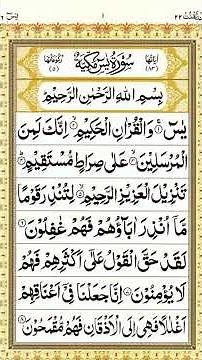 ومن يقنت ٢٢
١
يس
آياتها (٨٣)
سُوْرَةُ يٰسٓ مَكِّيَّةٌ
رُكُوْعَاتُهَا (٥)
بِسْمِ اللّٰهِ الرَّحْمٰنِ الرَّحِيْمِ
يٰسٓ ۚ۝١ وَالْقُرْاٰنِ الْحَكِيْمِ ۙ۝٢ اِنَّكَ لَمِنَ
الْمُرْسَلِيْنَ ۙ۝٣ عَلٰى صِرَاطٍ مُّسْتَقِيْمٍ ؕ۝٤
تَنْزِيْلَ الْعَزِيْزِ الرَّحِيْمِ ۙ۝٥ لِتُنْذِرَ قَوْمًا
مَّاۤ اُنْذِرَ اٰبَآؤُهُمْ فَهُمْ غٰفِلُوْنَ ۝٦
لَقَدْ حَقَّ الْقَوْلُ عَلٰۤى اَكْثَرِهِمْ فَهُمْ
لَا يُؤْمِنُوْنَ ۝٧ اِنَّا جَعَلْنَا فِيْۤ اَعْنَاقِهِمْ
اَغْلٰلًا فَهِيَ اِلَى الْاَذْقَانِ فَهُمْ مُّقْمَحُوْنَ ۝٨